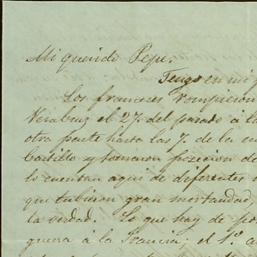 Mi querido Pepe.
Tengo en mi p
Los franceses rompieron
Veracruz el 27 del pasado á l
otra parte hasta las 7 de la
Castillo y tomaron posesion d
lo cuentan aqui de diferentes
que tubieron gran mortandad,
la verdad. Lo que hay de po
guerra á la Francia: el 1º